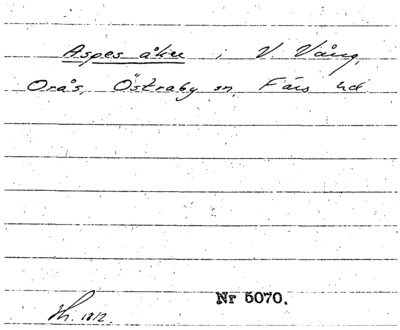 Aspes åker i V. Vång,
Orås, Östraby sn, Färs hd
Nr 5070.
1812.